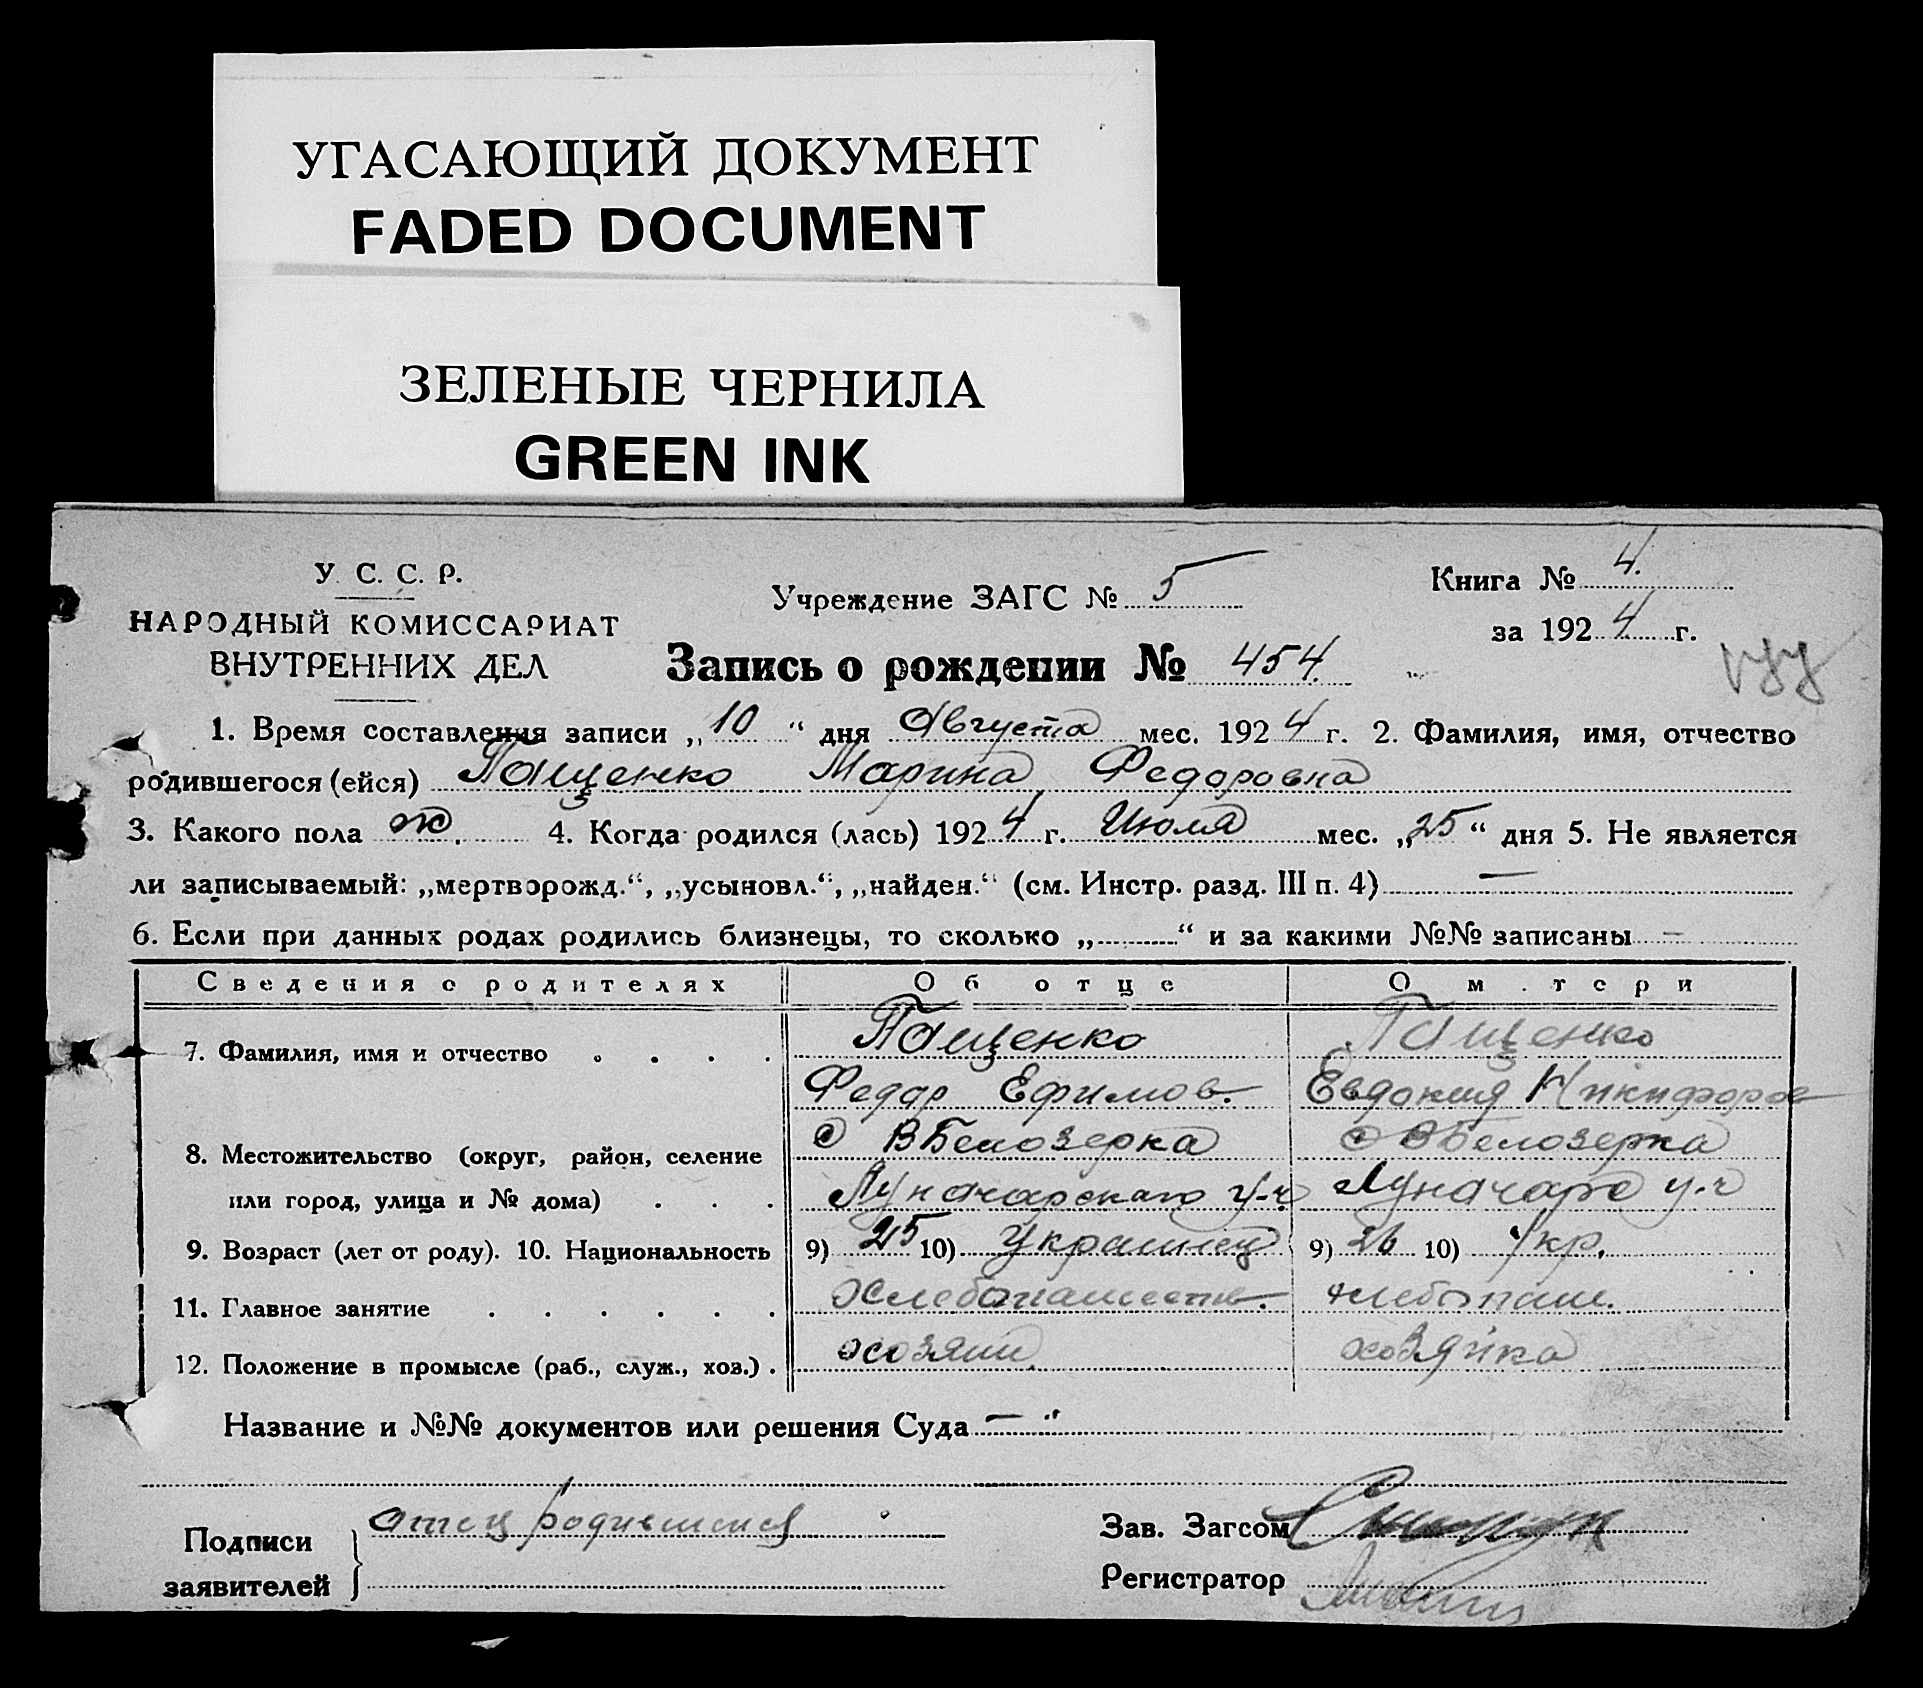 УГАСАЮЩИЙ ДОКУМЕНТ
FADED DOCUMENT
ЗЕЛЕНЫЕ ЧЕРНИЛА
GREEN INK
У. С. С. Р.
НАРОДНЫЙ КОМИССАРИАТ
ВНУТРЕННИХ ДЕЛ
Учреждение ЗАГС № 5
Книга № 4.
за 1924 г.
Запись о рождении № 454.
1. Время составления записи „10“ дня Августа мес. 1924 г. 2. Фамилия, имя, отчество
родившегося (ейся) Пащенко Марина Федоровна
3. Какого пола ж. 4. Когда родился (лась) 1924 г. Июля мес. „25“ дня 5. Не является
ли записываемый: „мертворожд.“, „усыновл.“, „найден.“ (см. Инстр. разд. III п. 4) —
6. Если при данных родах родились близнецы, то сколько „ “ и за какими №№ записаны —
Сведения о родителях Об отце О м.тери
7. Фамилия, имя и отчество Пащенко Пащенко
Федор Ефимов. Евдокия Никифоров
8. Местожительство (округ, район, селение с ВБелозерка с ВБелозерка
или город, улица и № дома) Луначарского у-ч Луначарс у-ч
9. Возраст (лет от роду). 10. Национальность 9) 25 10) Украинец 9) 26 10) Укр.
11. Главное занятие Хлебопашеств. хлебопаш.
12. Положение в промысле (раб., служ., хоз.) хозяин хозяйка
Название и №№ документов или решения Суда —
Подписи отец
заявителей
Зав. Загсом
Регистратор